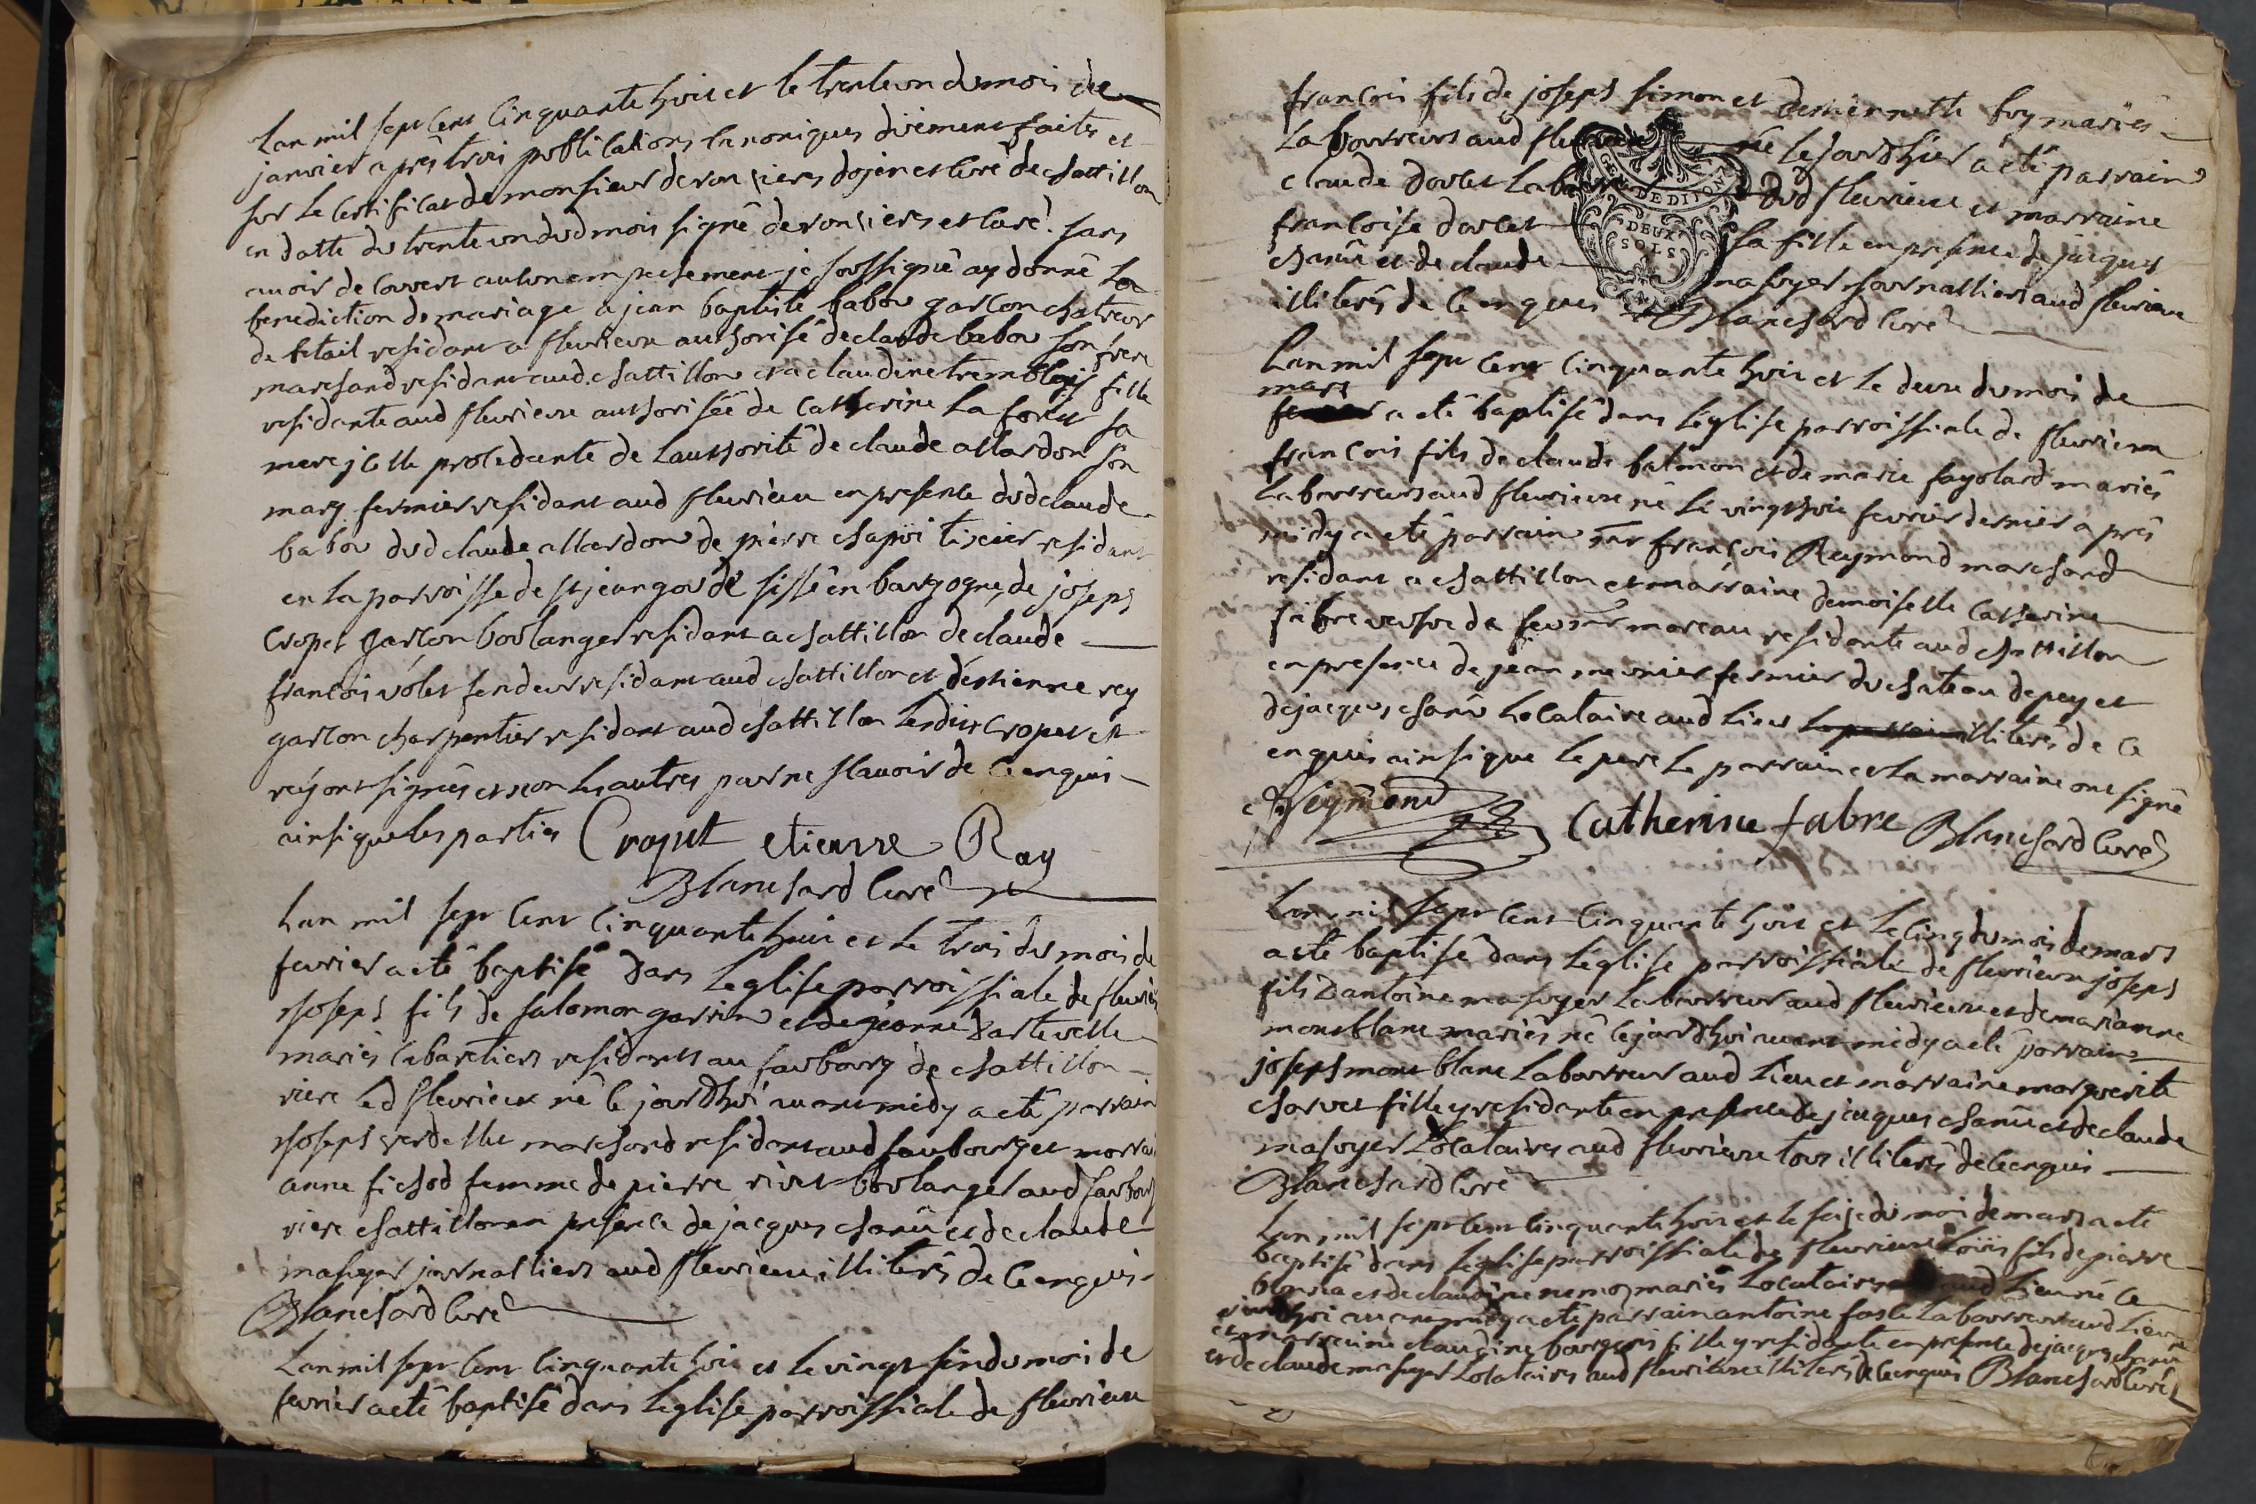 Lan mil sept cent cinquante huit et le trente un du mois de
janvier après trois publications canoniques diiement faites et
sur le certificat de monsieur de ronsiers dojen et curé de chattillon
en datte du trente un dud mois signé deronsiers et curé. sans
auoir decouvert aucun empechement je soussigné ay donné la
benediction de mariage a jean baptiste babou garcon chatreur
de betail residant a fleurieux authorisé de claude babou son frere
marchand residant aud chattillon et a claudine tremblois fille
residante aud fleurieux authorisée de catherine la foret sa
mere jcelle procedante de lauthorité de claude allardon son
mary fermier residant aud fleurieu en presence dud claude
babou dud claude allardon de pierre chapui tixier residant
en la parroisse de st jeangou de sissé en bourgogne, de joseph
Cropet garcon boulanger residant a chattillon de claude
francois volet fendeur residant aud chattillon et destienne rey
garcon charpentier residant aud chattillon lesdits cropet et
rey ont signés et non les autres pour ne scauoir de ce enquis
ainsi que les parties Cropet etienne Ray
Blanchard curé
Lan mil sept cent cinquante huit et le trois du mois de
fevrier a eté baptisé dans leglise parroissiale de fleurieu
joseph fils de salomon garrin et de jeanne
mariés cabaretiers residents au faubourg de chattillon
riere led fleurieux né ce jourdhui auant midy a eté parrain
joseph verdellet marchand residant aud faubourg et marrai
anne fichod femme de pierre rivet boulanger aud faubourg
riere chattillon en presence de jacques chanu et de claude
mafoyer journalliers aud fleurieu illiterés de ce enquis
Blanchard curé
Lan mil sept cent cinquante huit et le vingt sin du mois de
fevrier a eté baptisé dans leglise parroissiale de fleurieu
francois fils de joseph simon et destiennette foy mariés
Laboureurs aud né ce jourdhier a eté parrain
claude dovlet dud fleurieux et marraine
francoise dovlet sa fille en presence de jacques
chanu et de claude mafoyer journalliers aud fleurieu
illiterés de ce enquis Blanchard curé
GEN. DE DIION
DEUX
SOLS
Lan mil sept cent cinquante huit et le deux du mois de
mars
a eté baptisé dans leglise parroissiale de fleurieu
francois fils de claude balmon et de marie fayolard mariés
Laboureurs aud fleurieux né le vingt huit fevrier dernier après
midy a eté parrain sr francois Raymond marchand
residant a chattillon et marraine demoiselle catherine
fabre veufve de feu sr moreau residante aud chattillon
en presence de jean meunier fermier du chateau de pey et
de jacques chanu Locataire aud lieu le parrain illiterés de ce
enquis ainsi que le pere le parrain et la marraine ont signé
Reymond Catherine fabre Blanchard curé
Lan mil sept cent cinquante huit et le cinq du mois de mars
a eté baptisé dans leglise parroissiale de fleurieux joseph
fils dantoine mafoyer laboureur aud fleurieux et de marianne
montblanc mariés né ce jourdhui auant midy a eté parrain
joseph montblanc laboureur aud lieu et marraine marguerite
charvet fille y residante en presence de jacques chanu et de claude
mafoyer Locataires aud fleurieux tous illiterés de ce enquis
Blanchard curé
Lan mil sept cent cinquante huit et le seize du mois de mars a eté
baptisé dans leglise parroissiale de fleurieux loüis fils de pierre
et de claudine mariés Locataires aud lieu né ce
auant midy a eté parrain antoine laboureur aud lieu
et marraine claudine bourgeois fille y residante en presence de jacques chanu
et de claude mafoyer Locataires aud fleurieux illiterés de ce enquis Blanchard curé